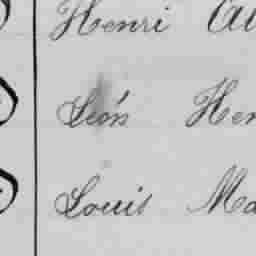 Henri
Léon Hen
Louis Ma